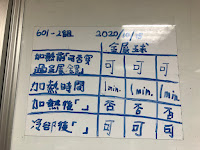 601-2組 2020/10/15
金屬球
加熱前可否穿過金屬鏡 可 可 可
加熱時間 1min. 1min. 1min.
加熱後「」 否 否 否
冷卻後「」 可 可 可